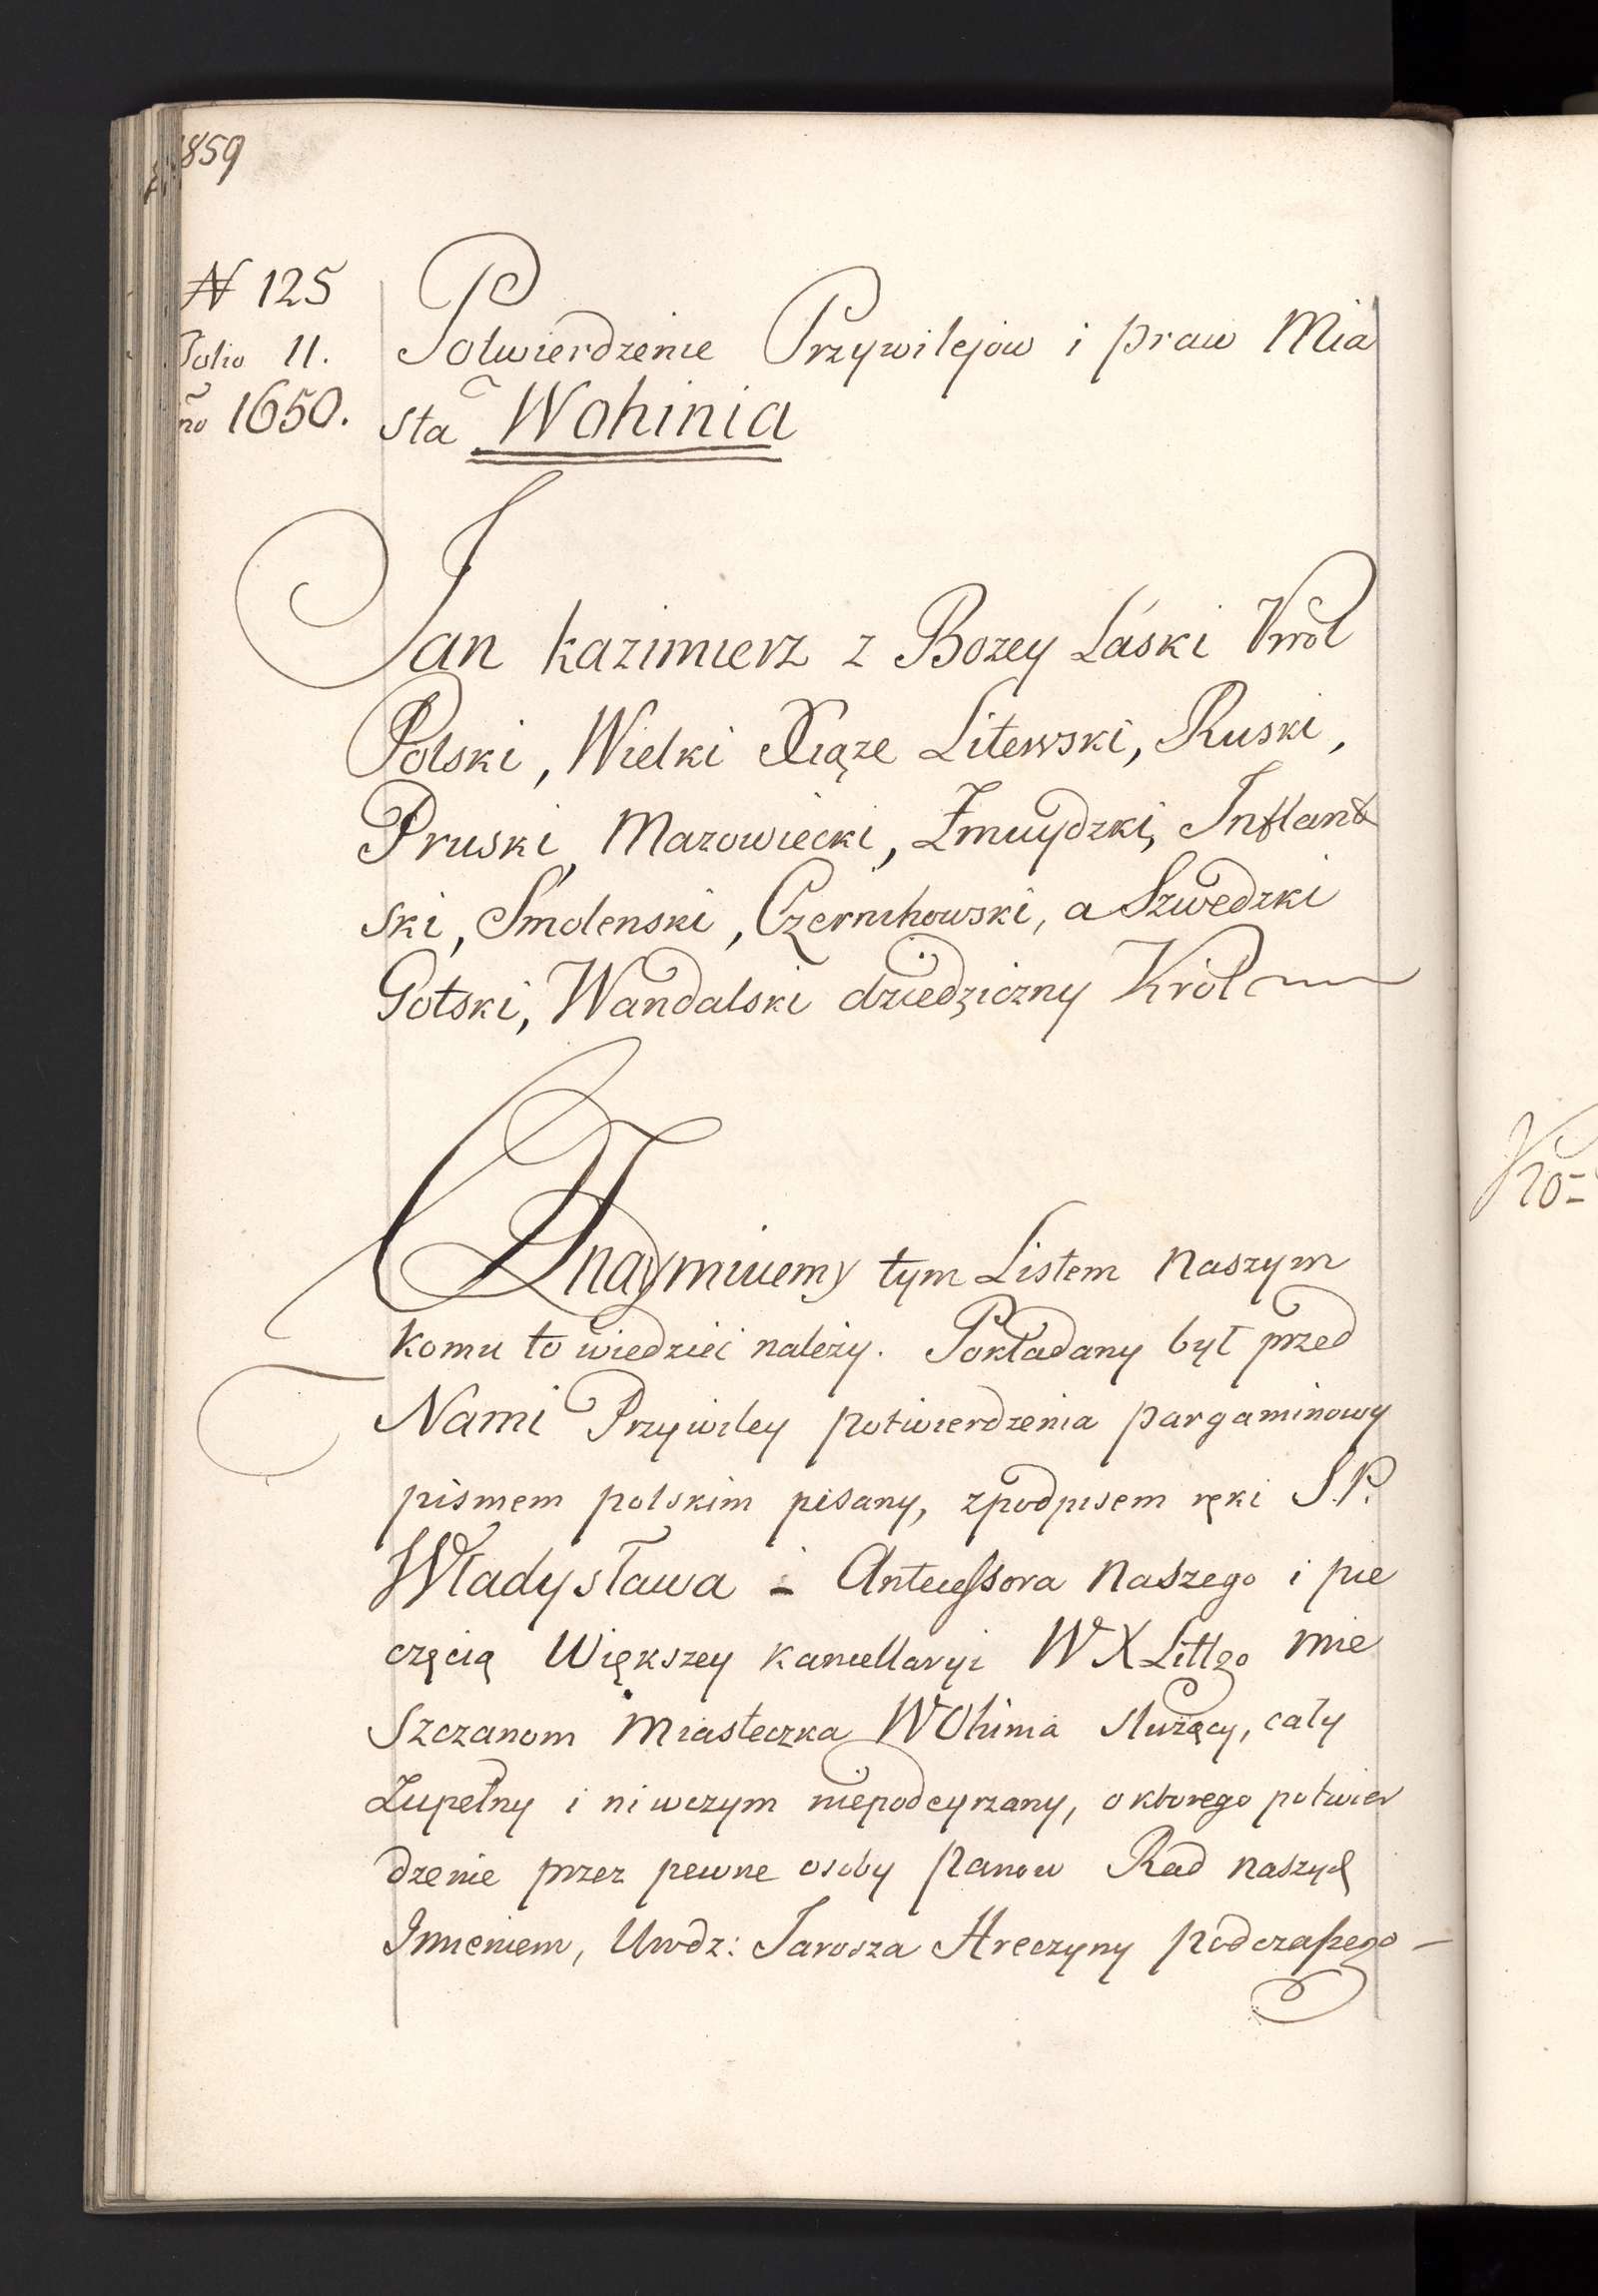 1859
N 125
Folio 11.
ño 1650.
Potwierdzenie Przywilejow i praw Mia
sta Wohinia
Jan kazimierz z Bozey Łaski Krol
Polski, Wielki Xiąze Litewski, Ruski,
Pruski, Mazowiecki, Zmuydzki, Inflant
ski, Smolenski, Czernihowski, a Szwedzki
Gotski, Wandalski dziedziczny Król
Oznaymuiemy tym Listem naszym
komu to wiedzieć należy. Pokładany był przed
Nami Przywiley potwierdzenia pargaminowy
pismem polskim pisany, zpodpisem ręki S.P.
Władysława Antecessora naszego i pie
częcią Większey kancellaryi W X Littgo mie
szczanom miasteczka Wohinia służący, cały
Zupełny i niwczym niepodeyrzany, oktorego potwier
dzenie przez pewne osoby Panow Rad naszych
Imieniem, Urodz: Jarosza Hreczyny podczaszego
Ko=